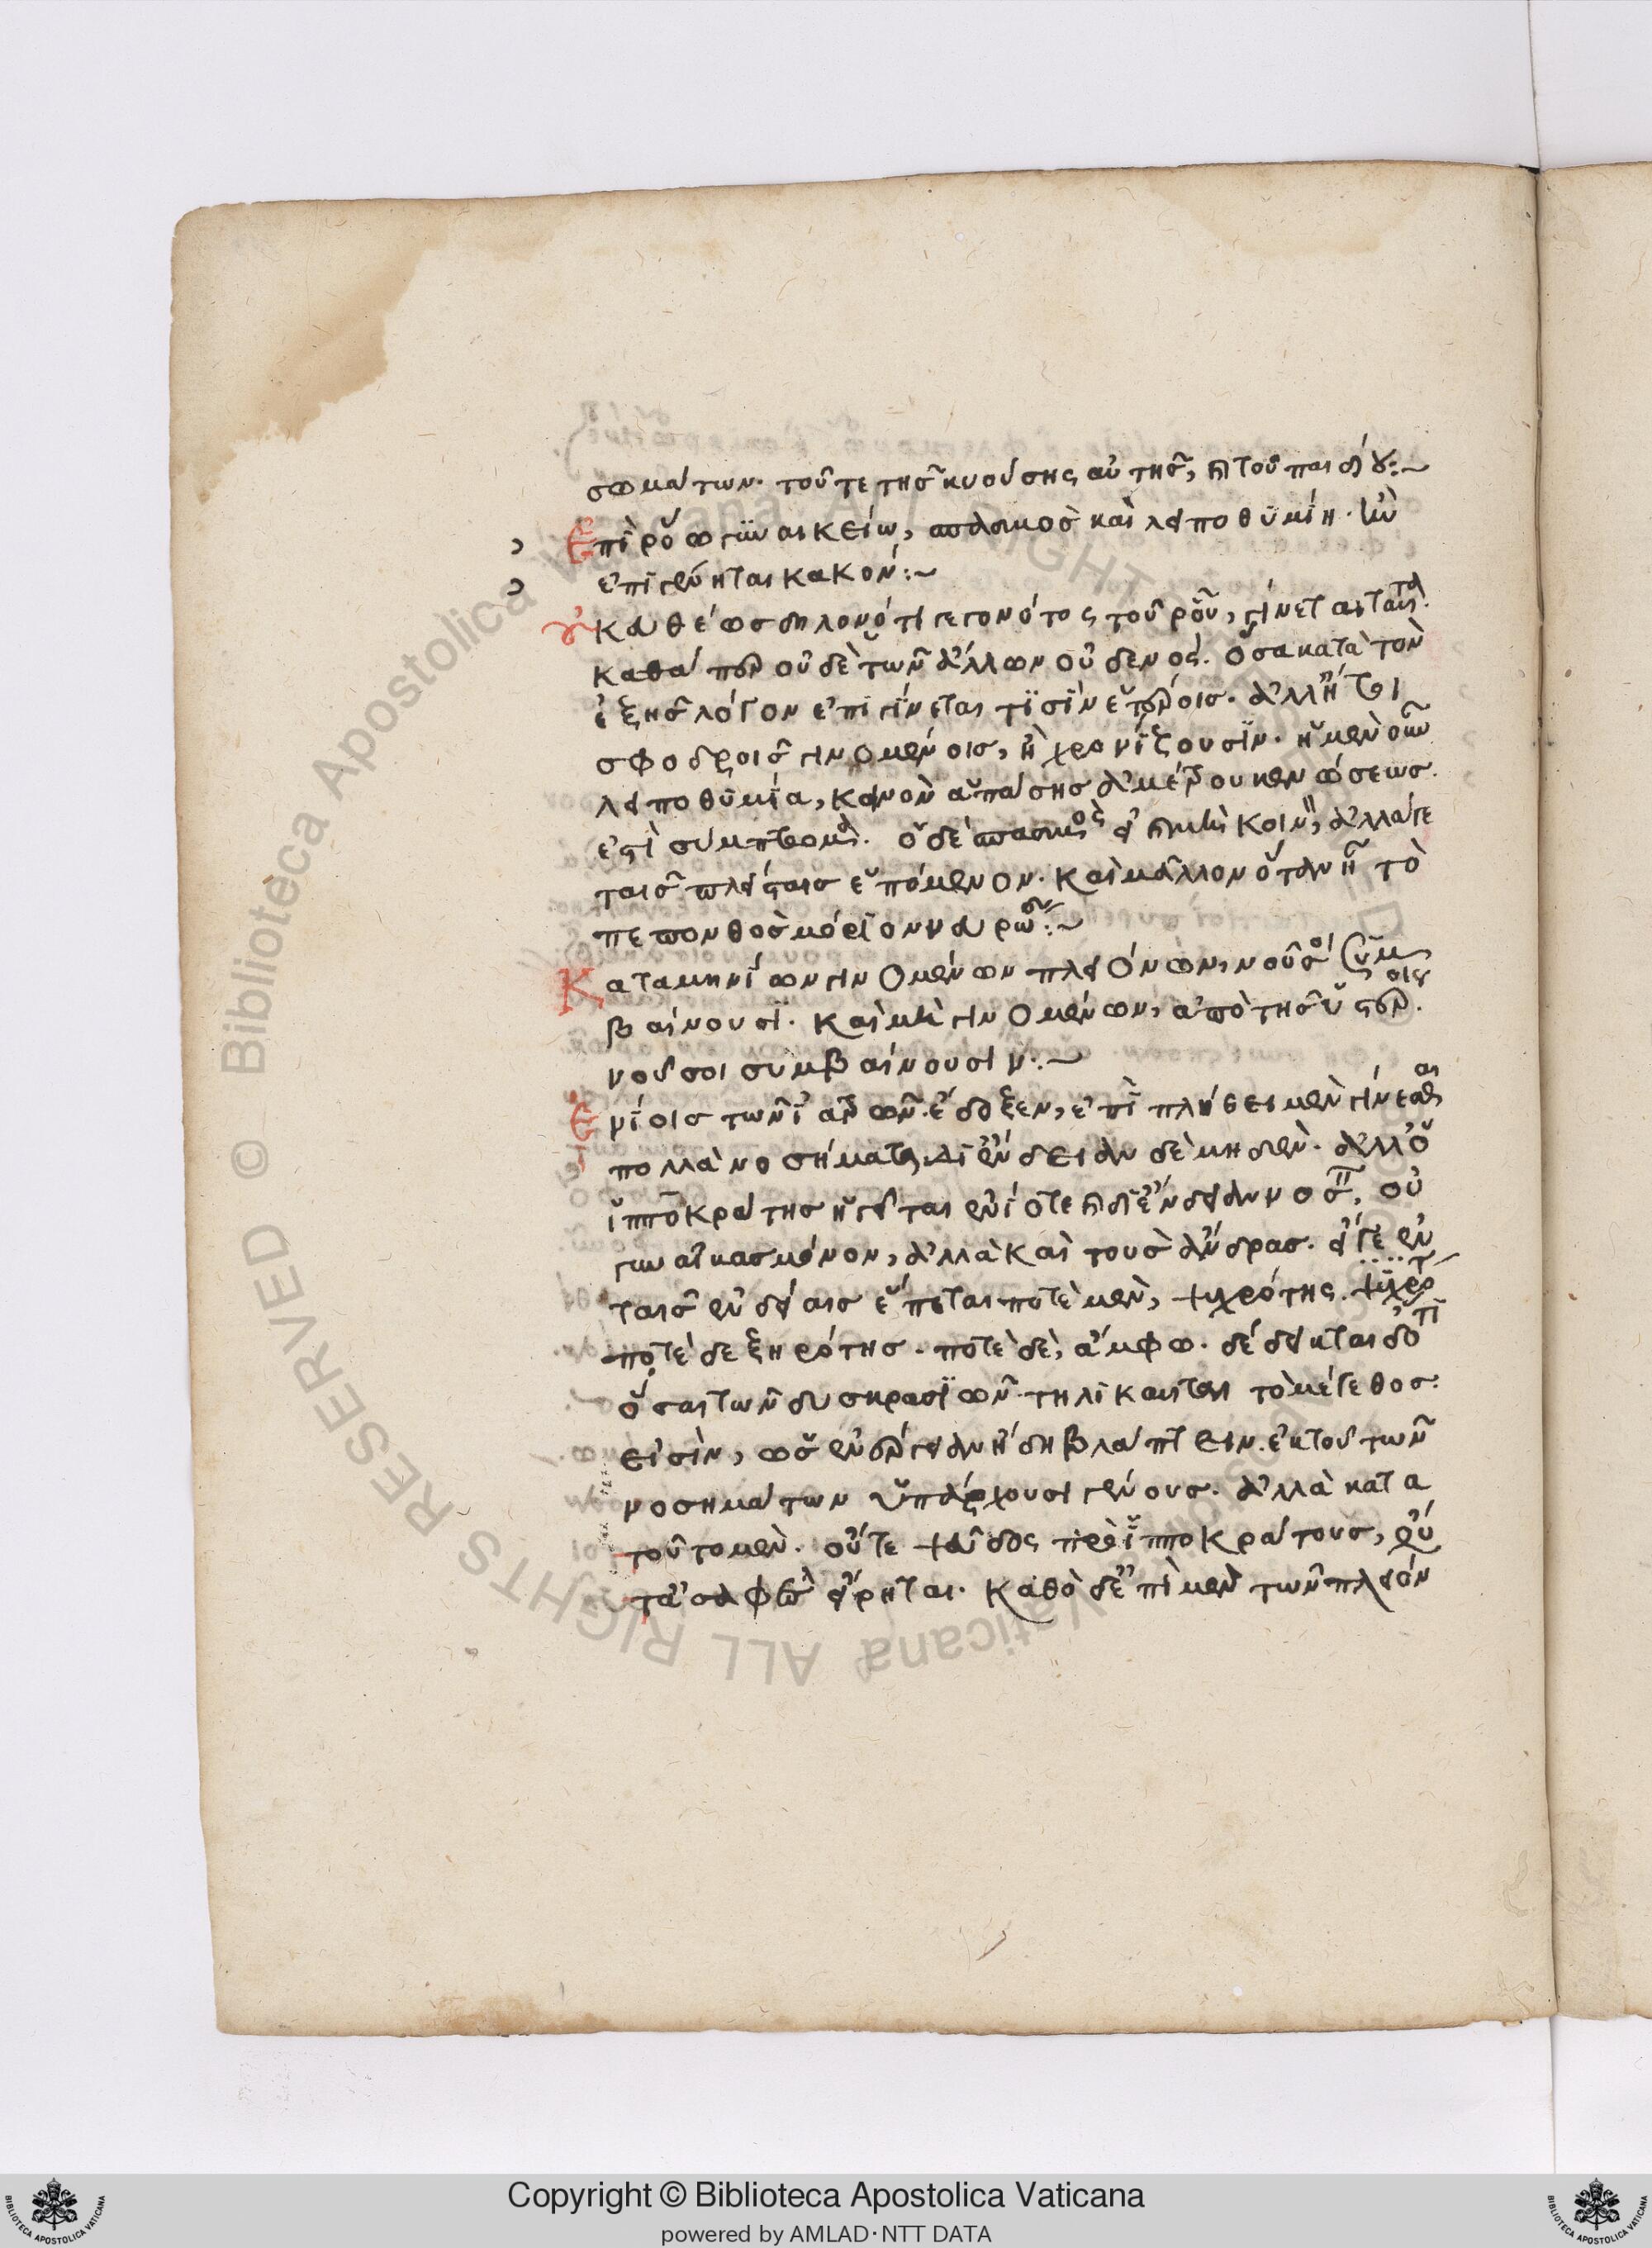 σωμάτων. τοῦ τε τῆς κυούσης αὐτῆς, καὶ τοῦ παιδίου:~
Ἐπὶ ῥόω γυναικείω, σπασμὸς καὶ λειποθυμίη· ἢν
ἐπιγένηται κακόν:~
Οὐκ εὐθέως δηλονότι γεγονότος τοῦ ῥοῦ, γίνεται ταῦτα.
καθάπερ οὐδὲ τῶν ἄλλων οὐδενός. ὅσα κατὰ τὸν
ἑξῆς λόγον ἐπιγίνεται τισὶν ἑτέροις. ἀλλ' ἤτοι
σφοδροῖς γινομένοις, ἢ χρονίζουσιν. ἡ μὲν οὖν
λειποθυμία, κοινὸν ἁπάσης ἀμέτρου κενώσεως
ἐστὶ σύμπτωμα. ὁ δὲ σπασμὸς εἰ καὶ μὴ κοινῆ, ἀλλά γε
ταῖς πλείσταις ἑπόμενον. καὶ μᾶλλον ὅταν ἦ τὸ
πεπονθὸς μόριον νευρῶδες:~
Καταμηνίων γινομένων πλειόνων, νοῦσοι συμ
βαίνουσι. καὶ μὴ γινομένων, ἀπὸ τῆς ὑστέρης
νοῦσοι συμβαίνουσιν:~
Ἐνίοις τῶν ἰατρῶν ἔδοξεν, ἐπὶ πλήθει μὲν γίνεσθαι
πολλὰ νοσήματα, δι' ἔνδειαν δὲ μηδέν. ἀλλ' ὁ
ἱπποκράτης ἡγεῖται ἐνίοτε καὶ δι' ἔνδειαν νοσ οὐ
γυναῖκας μόνον, ἀλλὰ καὶ τοὺς ἄνδρας. εἴγε ἐν
ταῖς ἐνδείαις ἕπεται ποτὲ μὲν, ψυχρότης. ψυχρότ
ποτὲ δὲ ξηρότης. ποτὲ δὲ, ἄμφω. δέδεικται δ' ὅτι
ὅσαι τῶν δυσκρασιῶν τηλικαῦται τὸ μέγεθος
εἰσὶν, ὡς ἐνέργειαν ἤδη βλάπτειν. ἐκ τοῦ τῶν
νοσημάτων ὑπάρχουσι γένους. ἀλλὰ κατα
τοῦτο μὲν. οὔτε ψεῦδος πρὸ ἱπποκράτους, οὔ
τ' ἀσαφῶς εἴρηται. καθὸ δ' ἐπὶ μὲν τῶν πλειόν